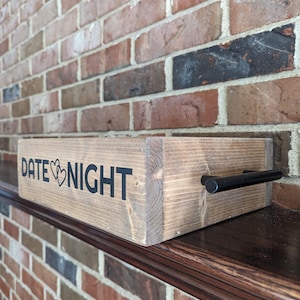 DATE NIGHT